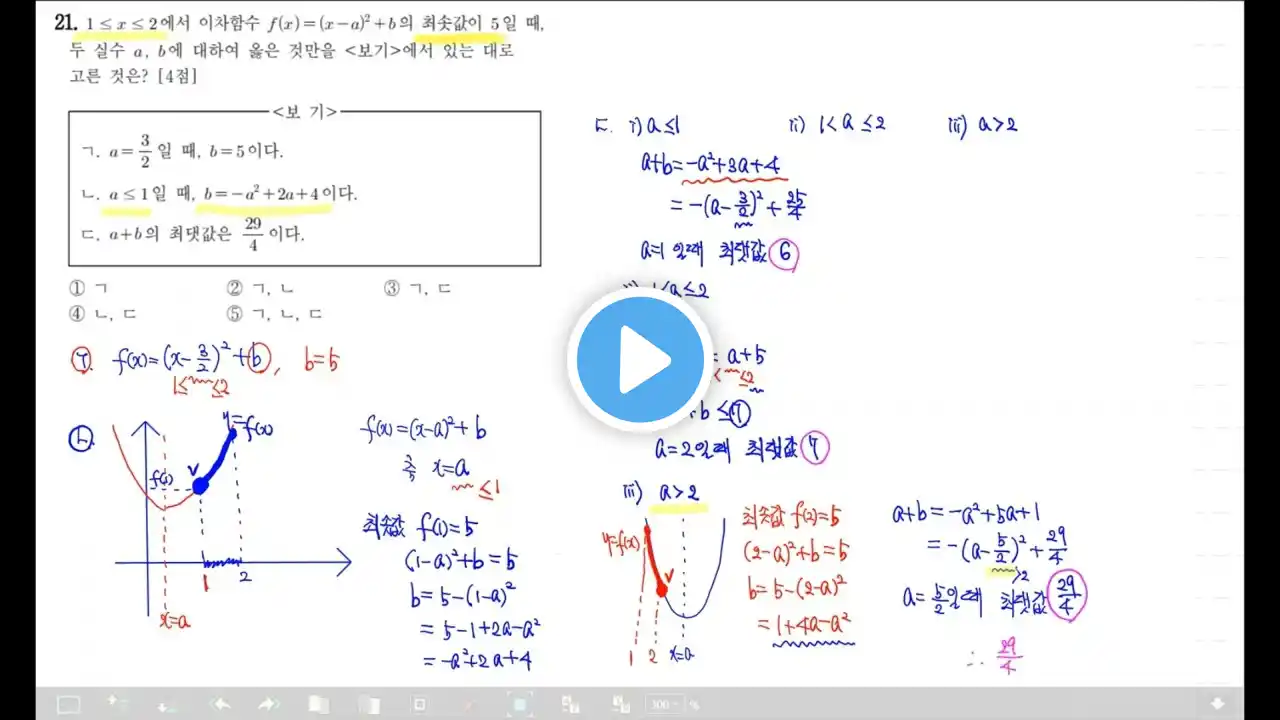 21. 1≤x≤2에서 이차함수 f(x)=(x-a)²+b의 최솟값이 5일 때,
두 실수 a, b에 대하여 옳은 것만을 <보기>에서 있는 대로
고른 것은? [4점]
<보 기>
ㄱ. a=3/2일 때, b=5이다.
ㄴ. a≤1일 때, b=-a²+2a+4이다.
ㄷ. a+b의 최댓값은 29/4이다.
① ㄱ ② ㄱ, ㄴ ③ ㄱ, ㄷ
④ ㄴ, ㄷ ⑤ ㄱ, ㄴ, ㄷ
ㄱ. f(x)=(x-3/2)²+b, b=5
1≤ ≤2
ㄴ.
y=f(x)
f(1)
1 2
x=a
f(x)=(x-a)²+b
축 x=a
≤1
최솟값 f(1)=5
(1-a)²+b=5
b=5-(1-a)²
=5-1+2a-a²
=-a²+2a+4
ㄷ. i) a≤1 ii) 1<a≤2 iii) a>2
a+b=-a²+3a+4
=-(a-3/2)²+25/4
a=1일때 최댓값 6
<a≤2
= a+5
< ≤2
+b≤7
a=2일때 최댓값 7
iii) a>2
y=f(x)
1 2 x=a
최솟값 f(2)=5
(2-a)²+b=5
b=5-(2-a)²
=1+4a-a²
a+b=-a²+5a+1
=-(a-5/2)²+29/4
>2
a=5/2일때 최댓값 29/4
∴ 29/4
300 %